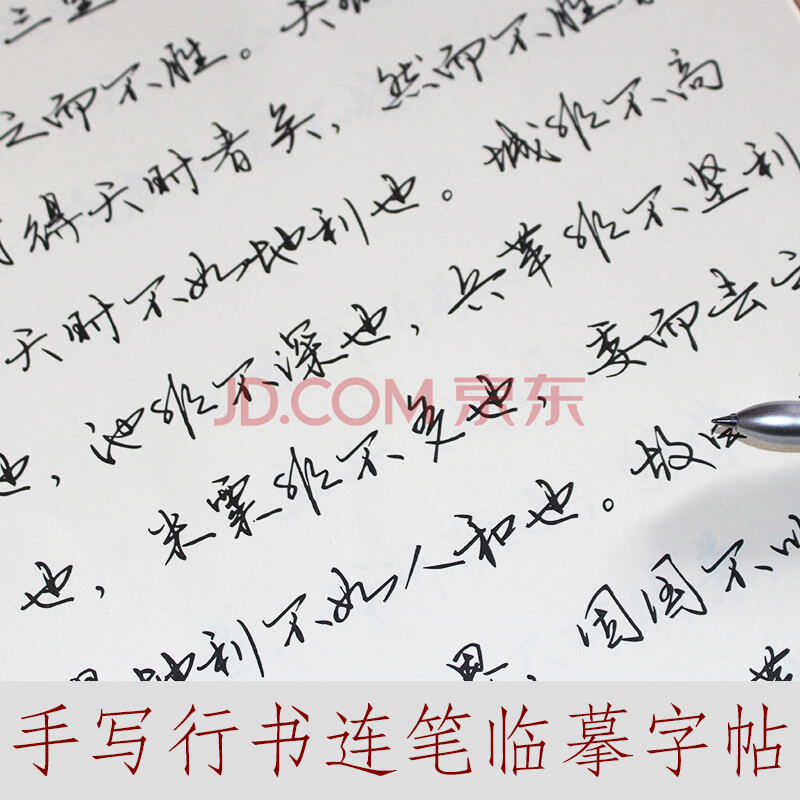 三里
之而不胜。夫
得天时者矣，然而不胜者
天时不如地利也。城非不高
也，池非不深也，兵革非不坚利
JD.COM 京东
也，米粟非不多也，委而去之
地利不如人和也。故曰
界，固国不以
手写行书连笔临摹字帖